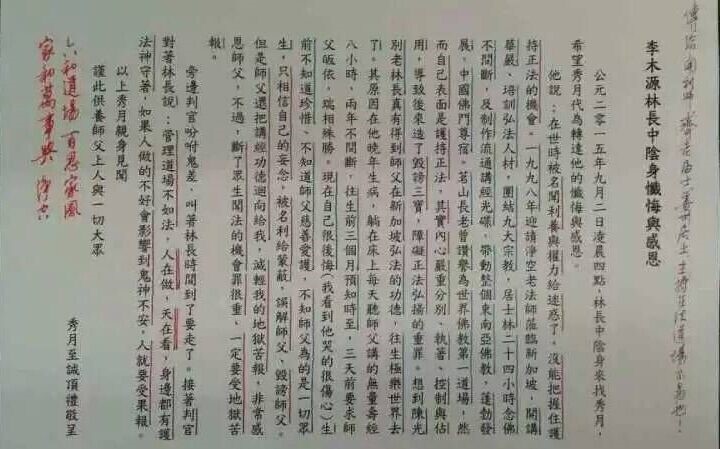 主持正法道場不易也!
李木源林長中陰身懺悔與感恩
公元二零一五年九月二日凌晨四點,林長中陰身來找秀月,
希望秀月代為轉達他的懺悔與感恩。
他說:在世時被名聞利養與權力給迷惑了。沒能把握住護
持正法的機會。一九九八年迎請淨空老法師蒞臨新加坡,開講
華嚴、培訓弘法人材,團結九大宗教,居士林二十四小時念佛
不間斷,及制作流通講經光碟,帶動整個東南亞佛教,蓬勃發
展,中國佛門尊宿。茗山長老曾讚譽為世界佛教第一道場,然
而自己表面是護持正法,其實內心嚴重分別、執著、控制與佔
用,導致後來造了毀謗三寶,障礙正法弘揚的重罪。想到陳光
別老林長真有得到師父在新加坡弘法的功德,往生極樂世界去
了。其原因在他晚年生病,躺在床上每天聽師父講的無量壽經
八小時,兩年不間斷,往生前三個月預知時至,三天前要求師
父皈依,瑞相殊勝。現在自己很後悔(我看到他哭的很傷心)生
前不知道珍惜、不知道師父慈悲愛護,不知師父為的是一切眾
生,只相信自己的妄念,被名利給蒙蔽,誤解師父、毀謗師父。
但是師父還把講經功德迴向給我,減輕我的地獄苦報,非常感
恩師父,不過,斷了眾生聞法的機會罪很重,一定要受地獄苦
報。
旁邊判官吩咐鬼差,叫著林長時間到了要走了。接著判官
對著林長說:管理道場不如法,人在做,天在看,身邊都有護
法神守著,如果人做的不好會影響到鬼神不安,人就要受果報。
以上秀月親身見聞
謹此供養師父上人與一切大眾
秀月至誠頂禮敬呈
六和道場 百忍家風
家和萬事興 淨空